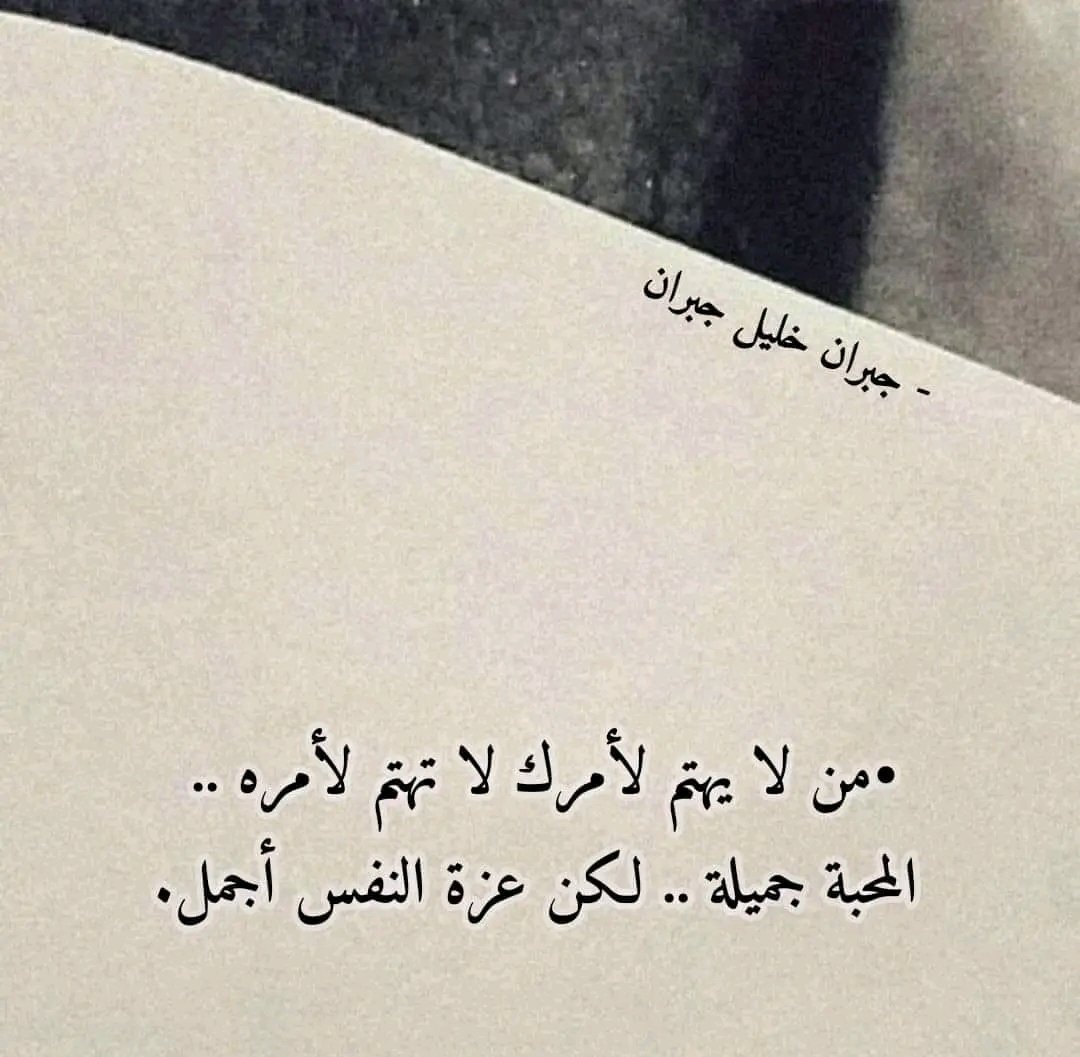 - جبران خليل جبران
•من لا يهتم لأمرك لا تهتم لأمره ..
المحبة جميلة .. لكن عزة النفس أجمل.